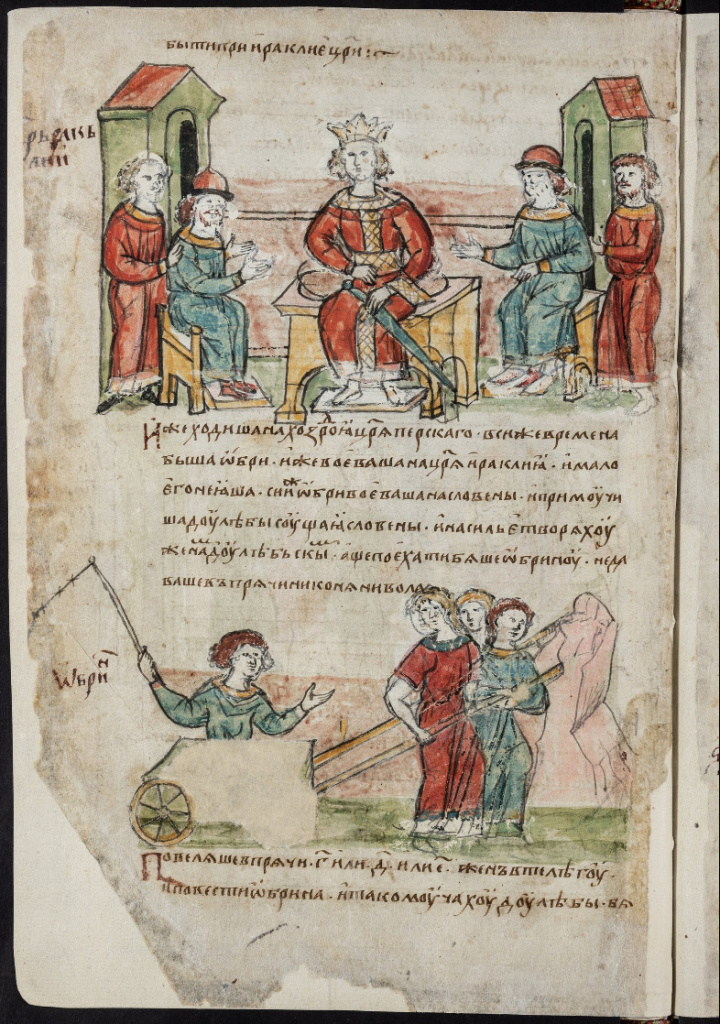 быти при ираклие цр҃и :
Иже ходиша на хоздрою цр҃ѧ перскаго · в си же времена
быша ѡбри · иже воеваша на цр҃ѧ ираклиѧ · и мало
его не ѩша · сиⷤи ѡбри воеваша на словены · и примоучи
ша доулѣбы соущаѩ словены · и насилье творѧхоу
женамъ доулѣбьскымъ · аще поехати бѧше ѡбриноу · не да
ваше въпрѧчи ни конѧ ни вола
ѡбрин
Повелѧше впрѧчи · г҃ · или · д҃ · или · е҃ · женъ в телѣгоу ·
и повести ѡбрина · и тако моучахоу доулѣбы · бѧ